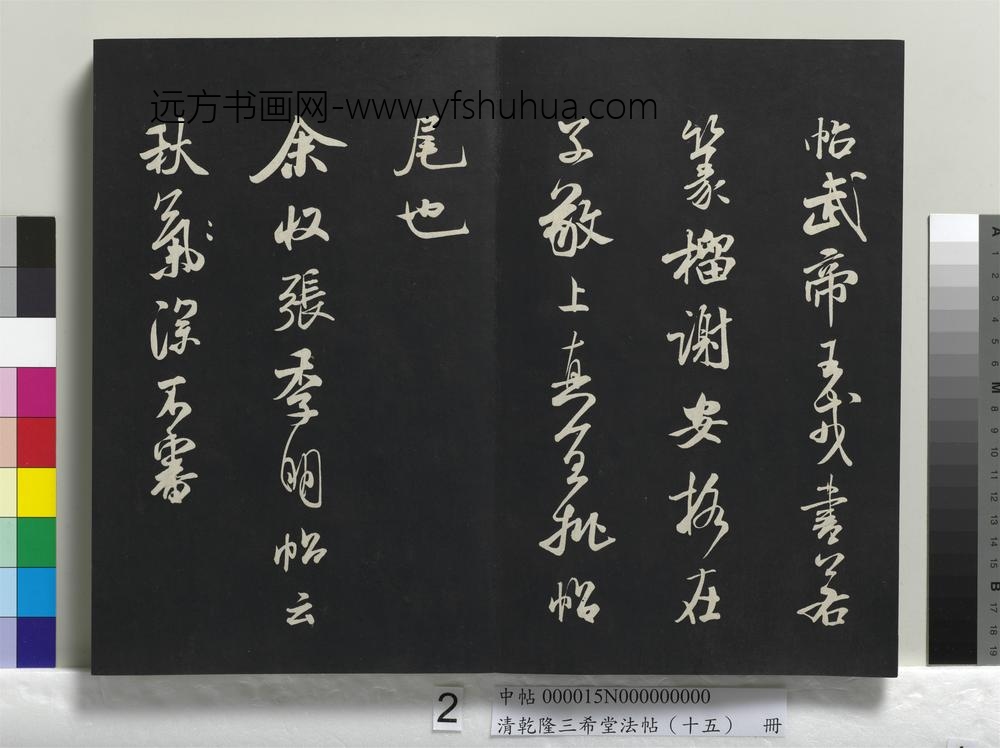 远方书画网-www.yfshuhua.com
帖武帝王戎書若
篆籀謝安格在
子敬上真宜批帖
尾也
余收張季明帖云
秋氣深不審
2
中帖 000015N000000000
清乾隆三希堂法帖（十五） 冊
A 1 2 3 4 5 M 8 9 10 11 12 13 14 15 B 17 18 19